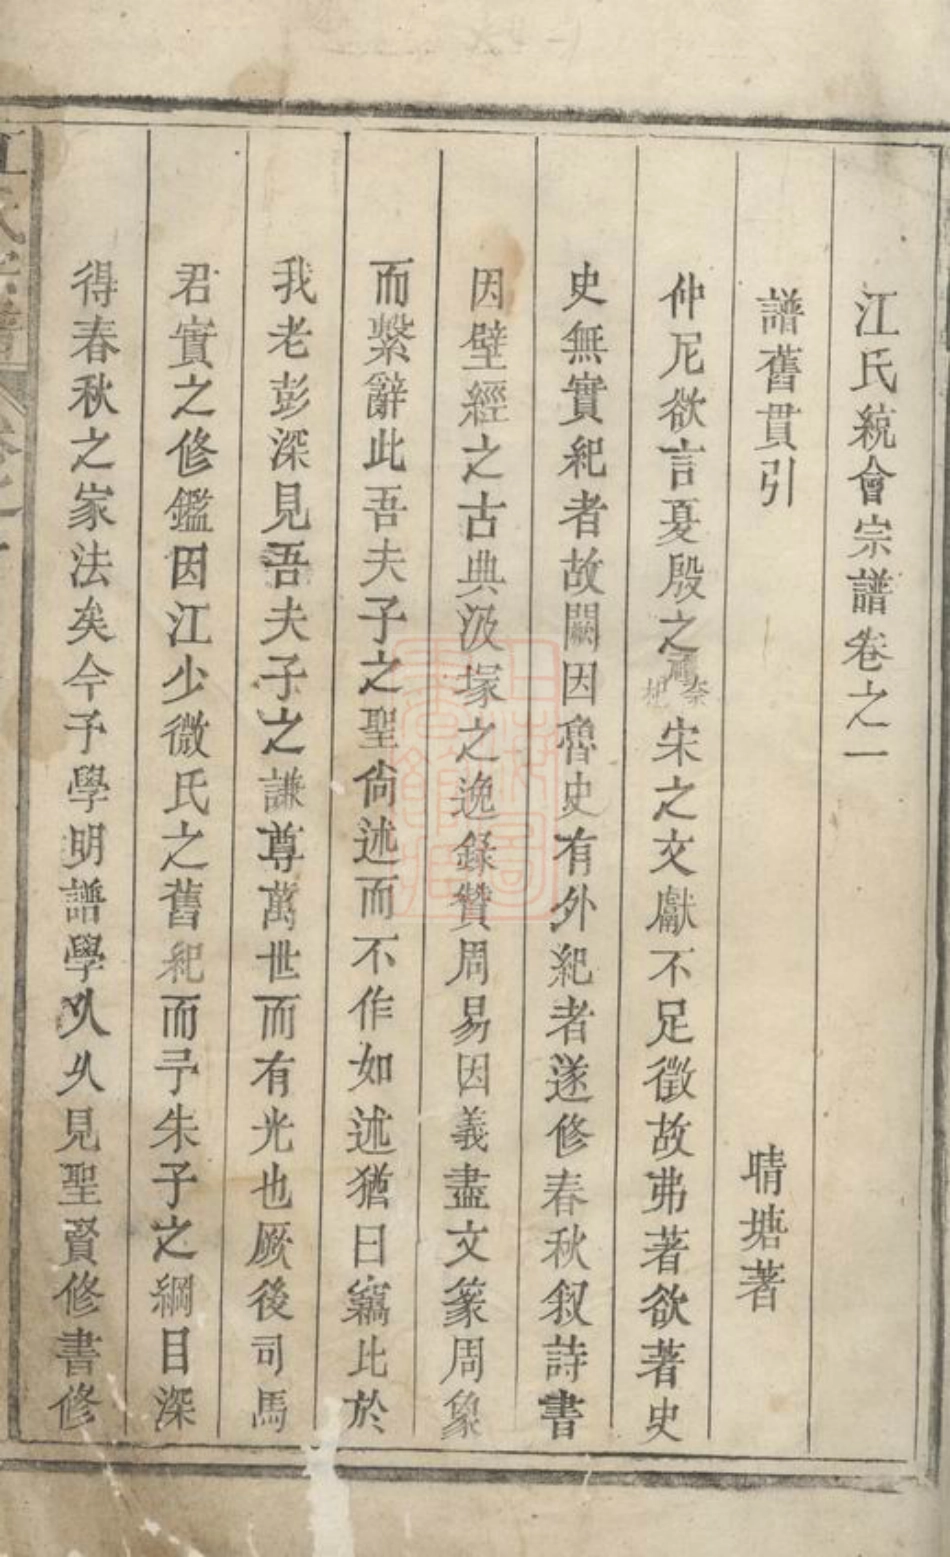 江氏統會宗譜卷之一
譜舊貫引
晴塘著
仲尼欲言夏殷之禮奈杞宋之文獻不足徵故弗著欲著史
史無實紀者故闕因魯史有外紀者遂修春秋叙詩書
因壁經之古典汲塚之逸錄贊周易因義盡文篆周象
而繫辭此吾夫子之聖尙述而不作如述猶曰竊比於
我老彭深見吾夫子之謙尊萬世而有光也厥後司馬
君實之修鑑因江少微氏之舊紀而予朱子之綱目深
得春秋之家法矣今予學明譜學久久見聖賢修書修
江氏宗譜 卷之一